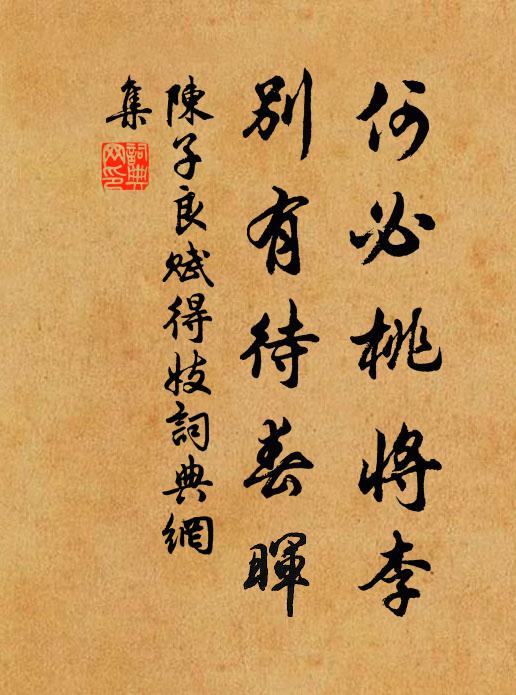 何必桃將李
別有待春暉
陳子良賦得妓詞典網
集
詞典
网印